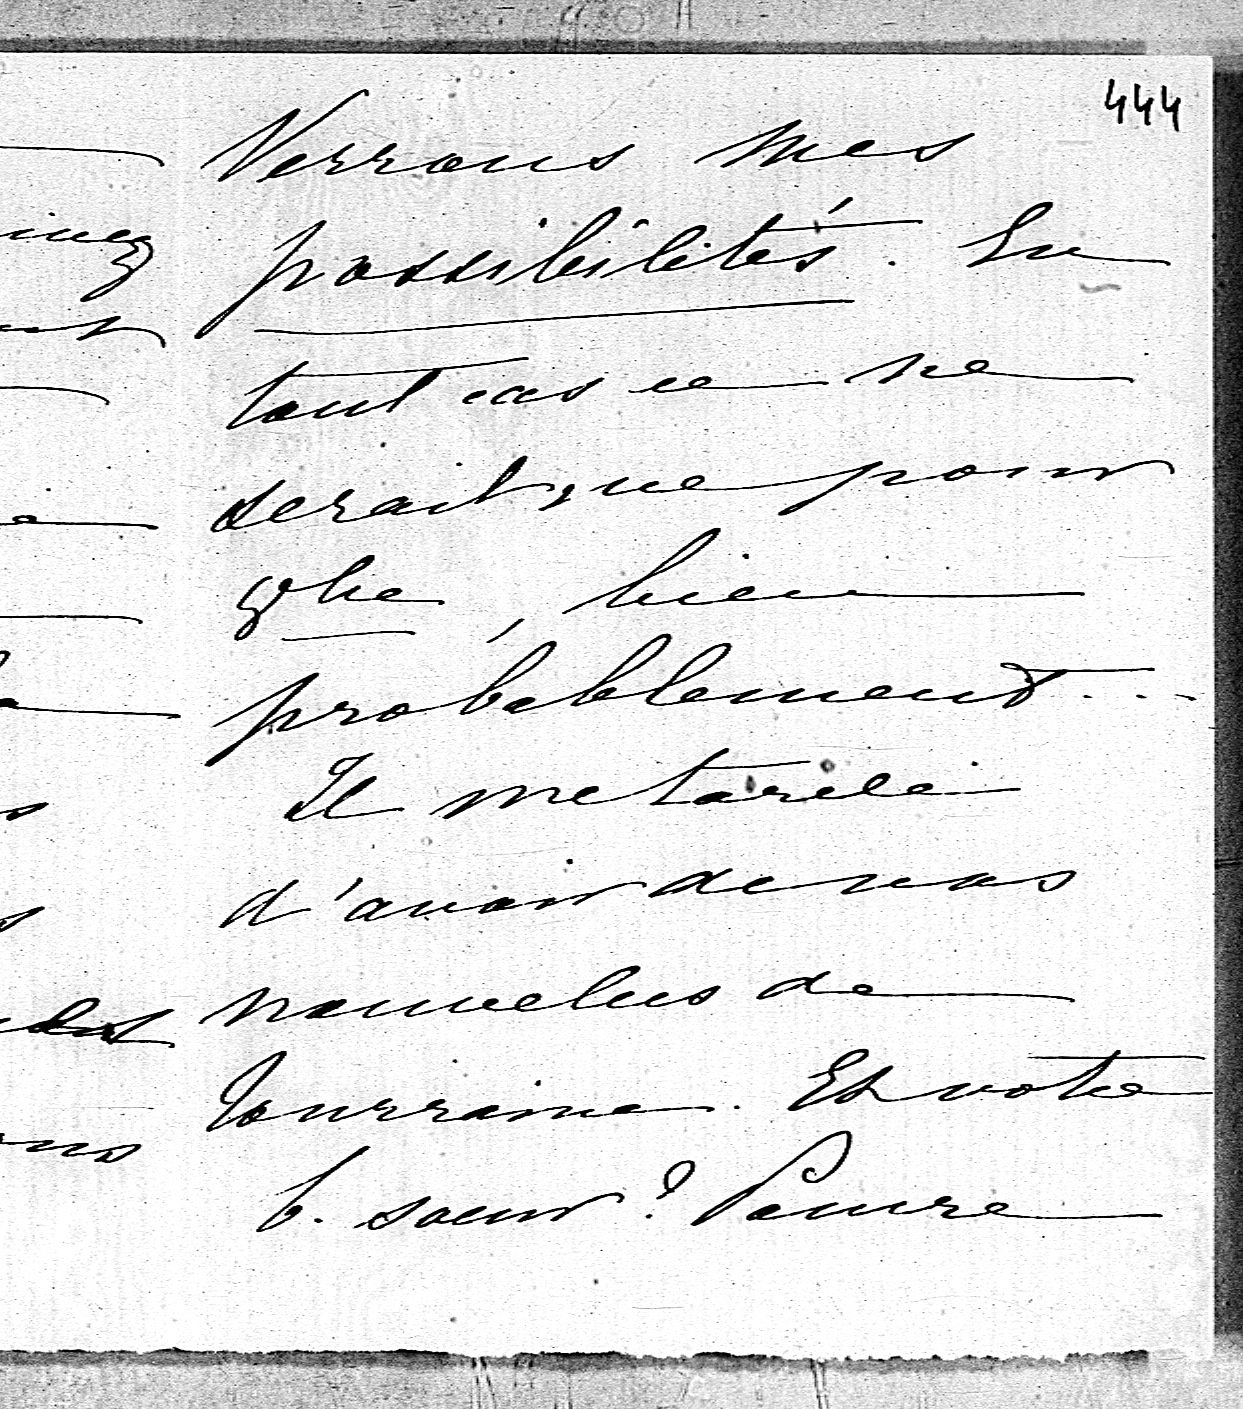 444
Verrons mes
possibilités. En
tout cas ce ne
serait que pour
qbre, bien
probablement...
Il me tarde
d'avoir de vos
nouvelles de
Tourraine. Et votre
b. soeur? Pauvre